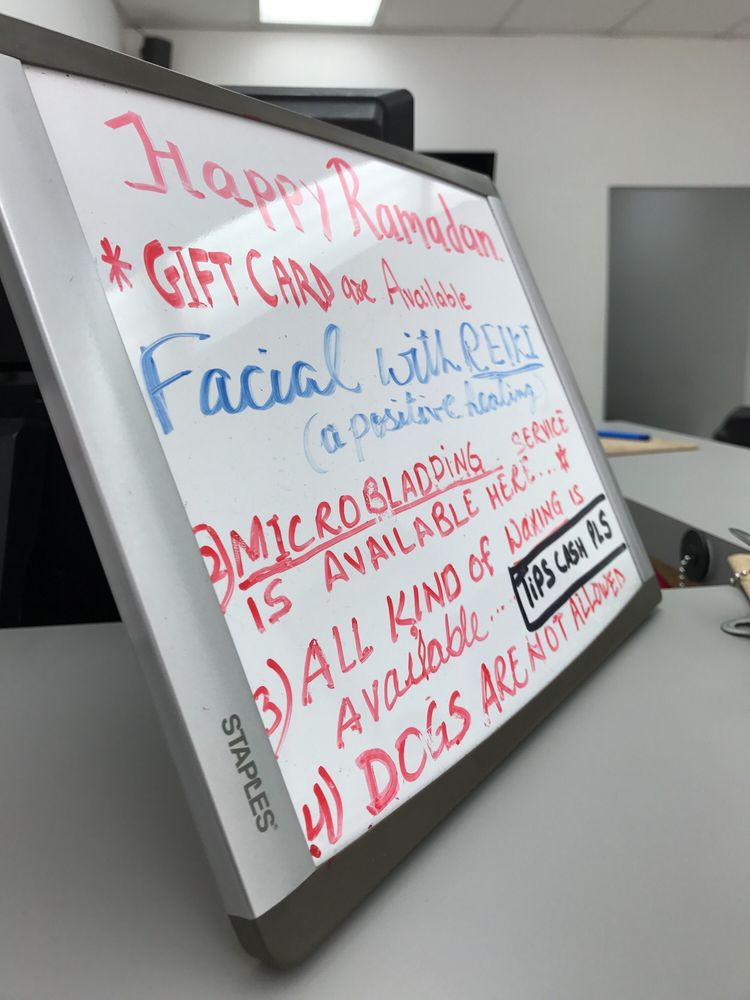 Happy Ramadan.
* GIFT CARD are Available
Facial with REIKI
(a positive healing)
2) MICROBLADDING SERVICE
IS AVAILABLE HERE...*
3) ALL KIND of WAXING IS
Available...
TIPS CASH PLS
4) DOGS ARE NOT ALLOWED
STAPLES